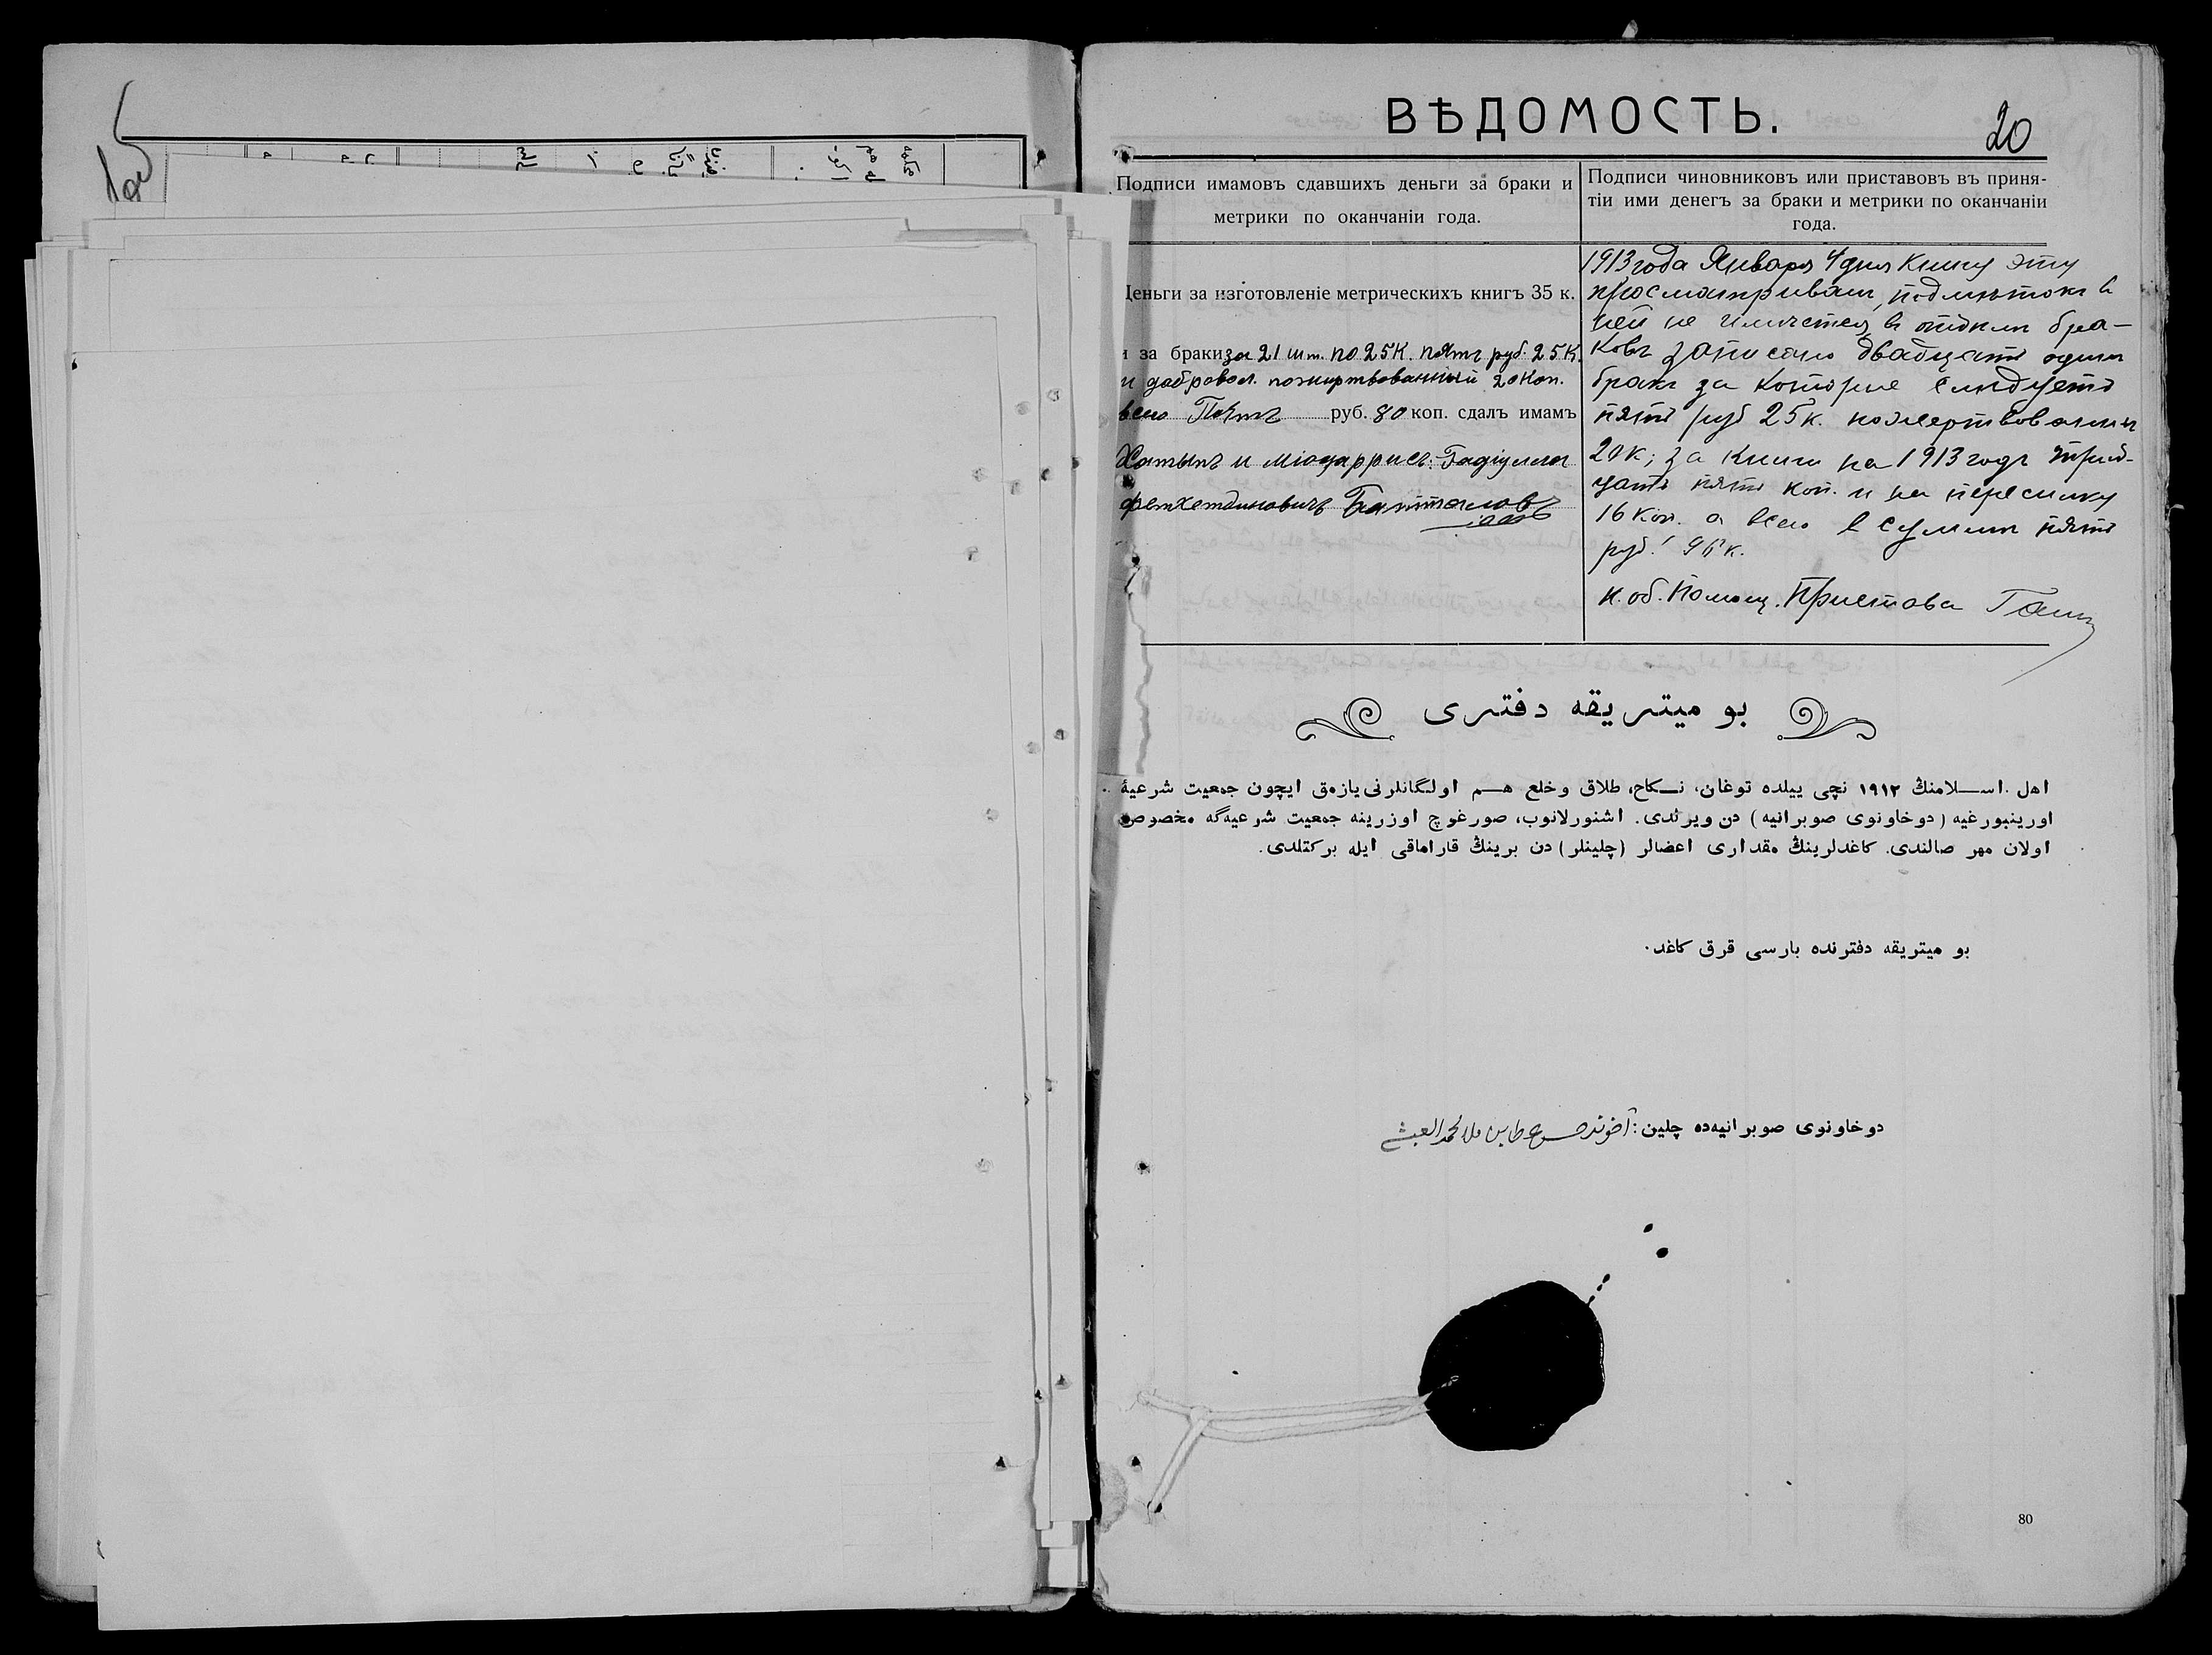 ВѢДОМОСТЬ.
20
Подписи имамовъ сдавшихъ деньги за браки и
метрики по оканчаніи года.
Подписи чиновниковъ или приставовъ въ приня-
тіи ими денегъ за браки и метрики по оканчаніи
года.
Деньги за изготовленіе метрическихъ книгъ 35 к.
и за браки за 21 шт. по 25 к. пять руб. 25 к.
и добровол. пожиртвованный 20 коп.
всего Пять руб. 80 коп. сдалъ имамъ
Хатыпъ и мюдаррисъ: Гадіулла
Фетхетдиновичъ Батталовъ
1913 года Января 4 дня книгу эту
просматривалъ, подмѣтокъ в
ней не имѣется, в отдѣлѣ бра-
ковъ записано двадцать один
бракъ за которые слѣдуетъ
пять руб 25 к. пожертвованны
20 к; за книги на 1913 годъ трид-
цать пять коп. и на пересылку
16 коп. а всего в суммѣ пять
руб. 96 к.
и. об. Помощ. Пристава
بو ميتريقه دفترى
اهل اسلامنڭ ١٩١٢ نچى ييلده توغان، نكاح، طلاق وخلع هم اولگانلرنى يازمق ايچون جمعيت شرعيۀ
اورينبورغيه (دوخاونوى صوبرانيه) دن ويرلدى. اشنورلانوب، صورغوچ اوزرينه جمعيت شرعيه‌گه مخصوص
اولان مهر صالندى. كاغدلرينڭ مقدارى اعضالر (چلينلر) دن برينڭ قاراماقى ايله بركتلدى.
بو ميتريقه دفترنده بارسى قرق كاغد.
دوخاونوى صوبرانيه‌ده چلين: آخوند
80